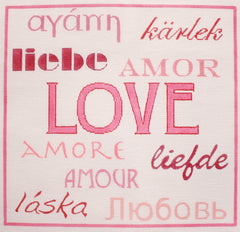 αγάπη kärlek
liebe AMOR
LOVE
AMORE liefde
AMOUR
láska Любовь